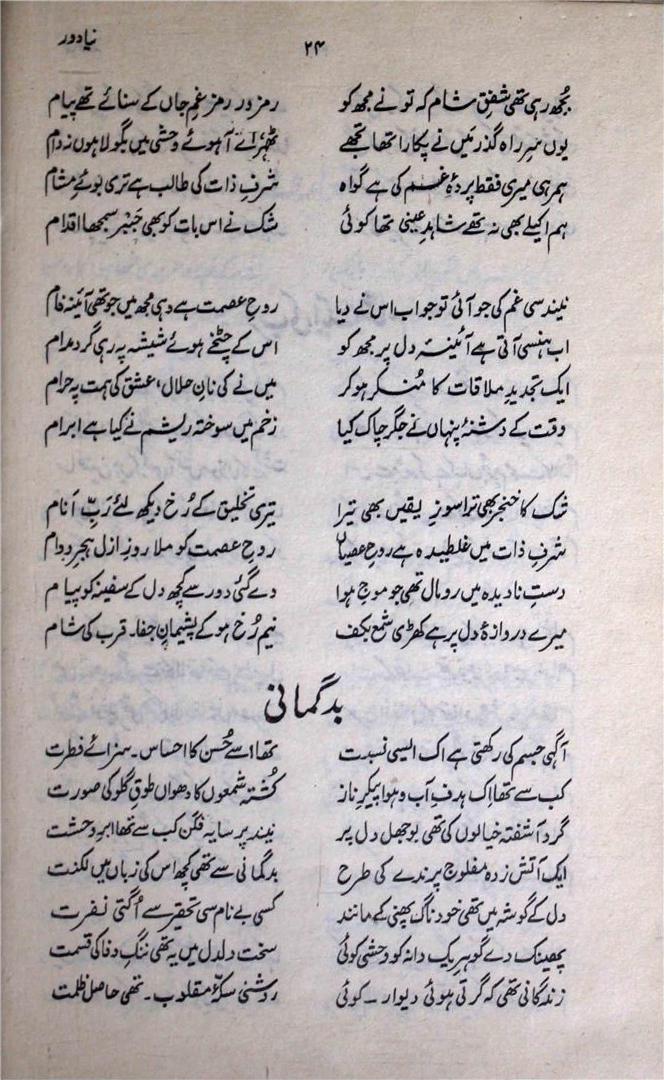 نیا دور
۲۴
بُجھ رہی تھی شفقِ شام کہ تو نے مجھ کو رمز در رمز غمِ جاں کے سنائے تھے پیام
یوں سرِ راہ گذر میں نے پکارا تھا تجھے ٹھہرائے آہوئے وحشی میں بگولا ہوں نہ دام
ہمرہی میری فقط پردۂ غم کی ہے گواہ شرفِ ذات کی طالب ہے تری بوئے مشام
ہم اکیلے بھی نہ تھے شاہدِ عینی تھا کوئی شک نے اس بات کو بھی جبر سمجھا اقدام
نیند سی غم کی جو آئی تو جواب اس نے دیا روحِ عصمت ہے وہی مجھ میں جو تھی آئینہ فام
اب ہنسی آتی ہے آئینۂ دل پر مجھ کو اس کے چٹخے ہوئے شیشہ پہ رہی گرد مدام
ایک تجدیدِ ملاقات کا مُنکر ہو کر میں نے کی نانِ حلال، عشق کی ہمت پہ حرام
وقت کے دشنۂ پنہاں نے جگر چاک کیا زخم میں سوختہ ریشم نے کیا ہے ابرام
شک کا خنجر بھی ترا سوزِ یقیں بھی تیرا تیری تخلیق کے رُخ دیکھ لئے ربِّ انام
شرفِ ذات میں غلطیدہ ہے روحِ عصیاں روحِ عصمت کو ملا روزِ ازل ہجرِ دوام
دستِ نادیدہ میں رومال تھی جو موجِ ہوا دے گئی دور سے کچھ دل کے سفینہ کو پیام
میرے دروازۂ دل پر ہے کھڑی شمع بکف نیم رُخ ہو کے پشیمانِ جفا۔ قرب کی شام
بدگمانی
آگہی جسم کی رکھتی ہے اک ایسی نسبت تھا اسے حُسن کا احساس۔ سزائے فطرت
کب سے تھا اک ہدفِ آب و ہوا پیکرِ ناز کُشتہ شمعوں کا دھواں طوقِ گلو کی صورت
گرد آشفتہ خیالوں کی تھی بوجھل دل پر نیند پر سایہ فگن کب سے تھا ابرِ وحشت
ایک آتش زدہ مفلوج پرندے کی طرح بدگمانی سے تھی کچھ اس کی زباں میں لکنت
دل کے گوشہ میں تھی خود ناگ پھنی کے مانند کسی بے نام سی تحقیر سے اُگتی نفرت
پھینک دے گوہرِ یک دانہ کو وحشی کوئی سخت دلدل میں یہ تھی ننگِ وفا کی قسمت
زندگانی تھی کہ گرتی ہوئی دیوار۔ کوئی روشنی سکۂ مقلوب۔ تھی حاصل ظلمت